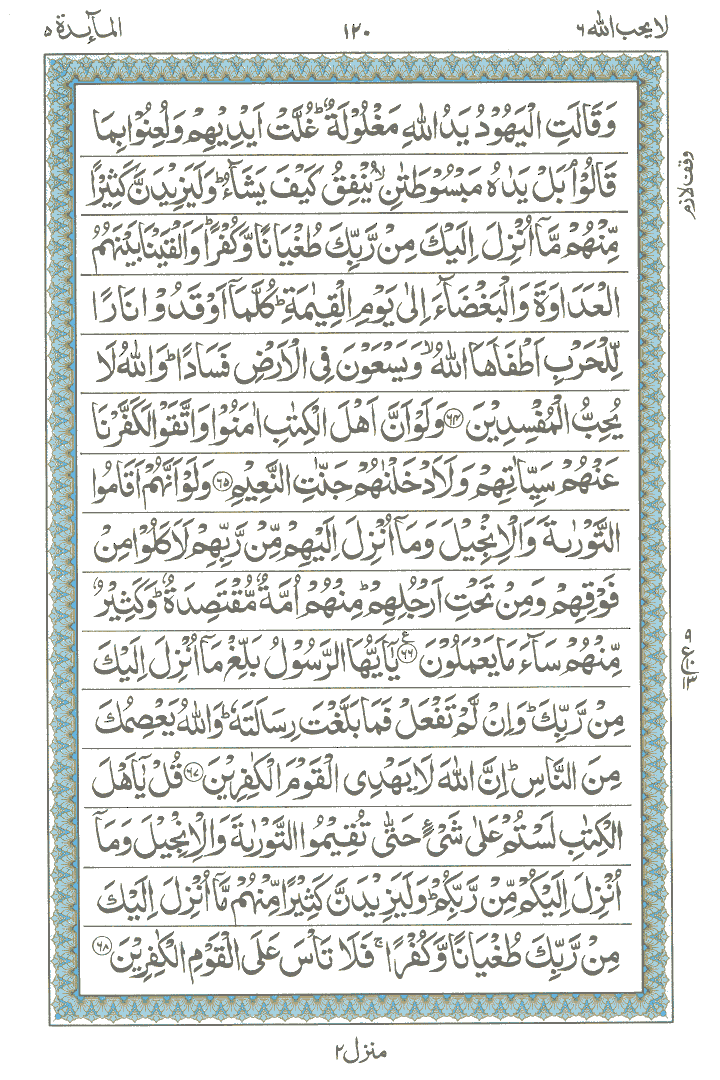 لا يحب الله ٦ ١٢٠ المآئدة ٥
وَقَالَتِ الْيَهُوْدُ يَدُ اللّٰهِ مَغْلُوْلَةٌ ؕ غُلَّتْ اَيْدِيْهِمْ وَلُعِنُوْا بِمَا
قَالُوْا ۘ بَلْ يَدٰهُ مَبْسُوْطَتٰنِ ۙ يُنْفِقُ كَيْفَ يَشَآءُ ؕ وَلَيَزِيْدَنَّ كَثِيْرًا
وقف لازم
مِّنْهُمْ مَّاۤ اُنْزِلَ اِلَيْكَ مِنْ رَّبِّكَ طُغْيَانًا وَّكُفْرًا ؕ وَاَلْقَيْنَا بَيْنَهُمُ
الْعَدَاوَةَ وَالْبَغْضَآءَ اِلٰى يَوْمِ الْقِيٰمَةِ ؕ كُلَّمَاۤ اَوْقَدُوْا نَارًا
لِّلْحَرْبِ اَطْفَاَهَا اللّٰهُ ۙ وَيَسْعَوْنَ فِى الْاَرْضِ فَسَادًا ؕ وَاللّٰهُ لَا
يُحِبُّ الْمُفْسِدِيْنَ ﴿٦٤﴾ وَلَوْ اَنَّ اَهْلَ الْكِتٰبِ اٰمَنُوْا وَاتَّقَوْا لَكَفَّرْنَا
عَنْهُمْ سَيِّاٰتِهِمْ وَلَاَدْخَلْنٰهُمْ جَنّٰتِ النَّعِيْمِ ﴿٦٥﴾ وَلَوْ اَنَّهُمْ اَقَامُوا
التَّوْرٰىةَ وَالْاِنْجِيْلَ وَمَاۤ اُنْزِلَ اِلَيْهِمْ مِّنْ رَّبِّهِمْ لَاَكَلُوْا مِنْ
فَوْقِهِمْ وَمِنْ تَحْتِ اَرْجُلِهِمْ ؕ مِنْهُمْ اُمَّةٌ مُّقْتَصِدَةٌ ؕ وَكَثِيْرٌ
مِّنْهُمْ سَآءَ مَا يَعْمَلُوْنَ ﴿٦٦﴾ ع يٰۤاَيُّهَا الرَّسُوْلُ بَلِّغْ مَاۤ اُنْزِلَ اِلَيْكَ
٩ ع ١٠ ١٣
مِنْ رَّبِّكَ ؕ وَاِنْ لَّمْ تَفْعَلْ فَمَا بَلَّغْتَ رِسَالَتَهٗ ؕ وَاللّٰهُ يَعْصِمُكَ
مِنَ النَّاسِ ؕ اِنَّ اللّٰهَ لَا يَهْدِى الْقَوْمَ الْكٰفِرِيْنَ ﴿٦٧﴾ قُلْ يٰۤاَهْلَ
الْكِتٰبِ لَسْتُمْ عَلٰى شَىْءٍ حَتّٰى تُقِيْمُوا التَّوْرٰىةَ وَالْاِنْجِيْلَ وَمَاۤ
اُنْزِلَ اِلَيْكُمْ مِّنْ رَّبِّكُمْ ؕ وَلَيَزِيْدَنَّ كَثِيْرًا مِّنْهُمْ مَّاۤ اُنْزِلَ اِلَيْكَ
مِنْ رَّبِّكَ طُغْيَانًا وَّكُفْرًا ۚ فَلَا تَاْسَ عَلَى الْقَوْمِ الْكٰفِرِيْنَ ﴿٦٨﴾
منزل ٢